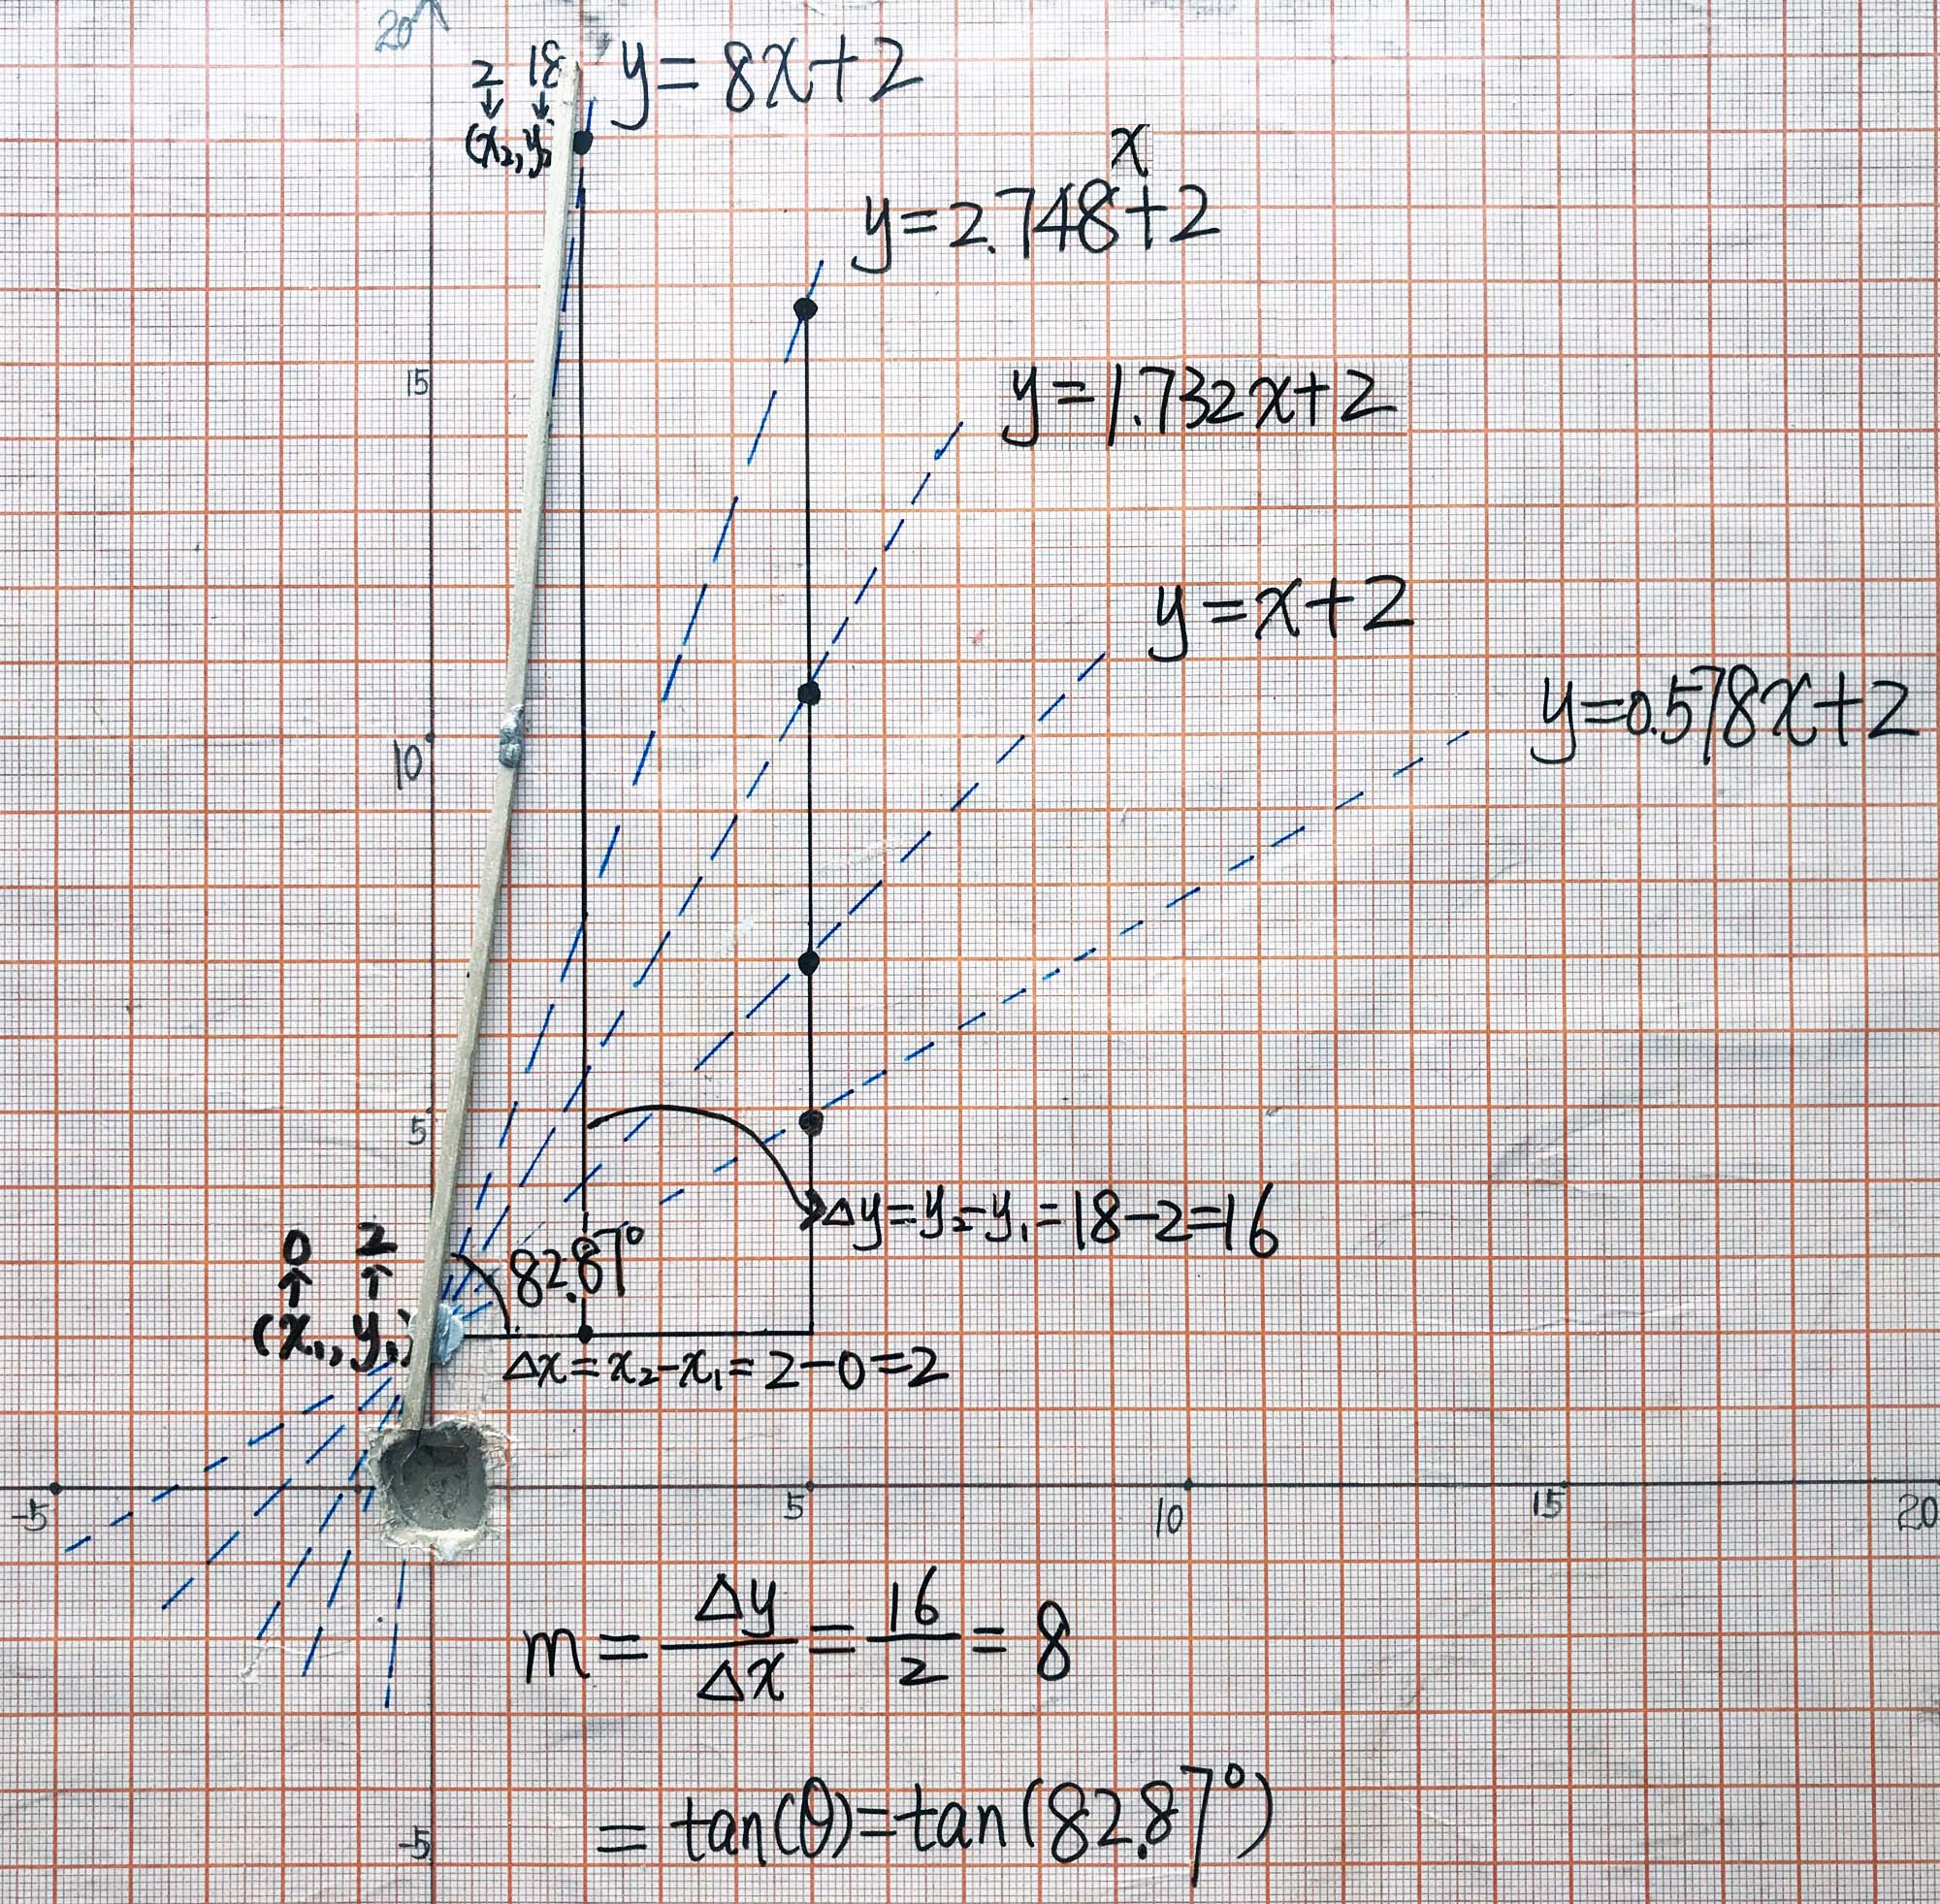 20
2 18
↓ ↓
(x₂, y₂
y = 8x+2
x
y=2.748+2
15
y=1.732x+2
y=x+2
y=0.578x+2
10
5
Δy=y₂-y₁=18-2=16
0 2
↑ ↑
(x₁, y₁)
82.87°
Δx=x₂-x₁=2-0=2
-5 5 10 15 20
m = Δy/Δx = 16/2 = 8
= tan(θ)=tan(82.87°)
-5